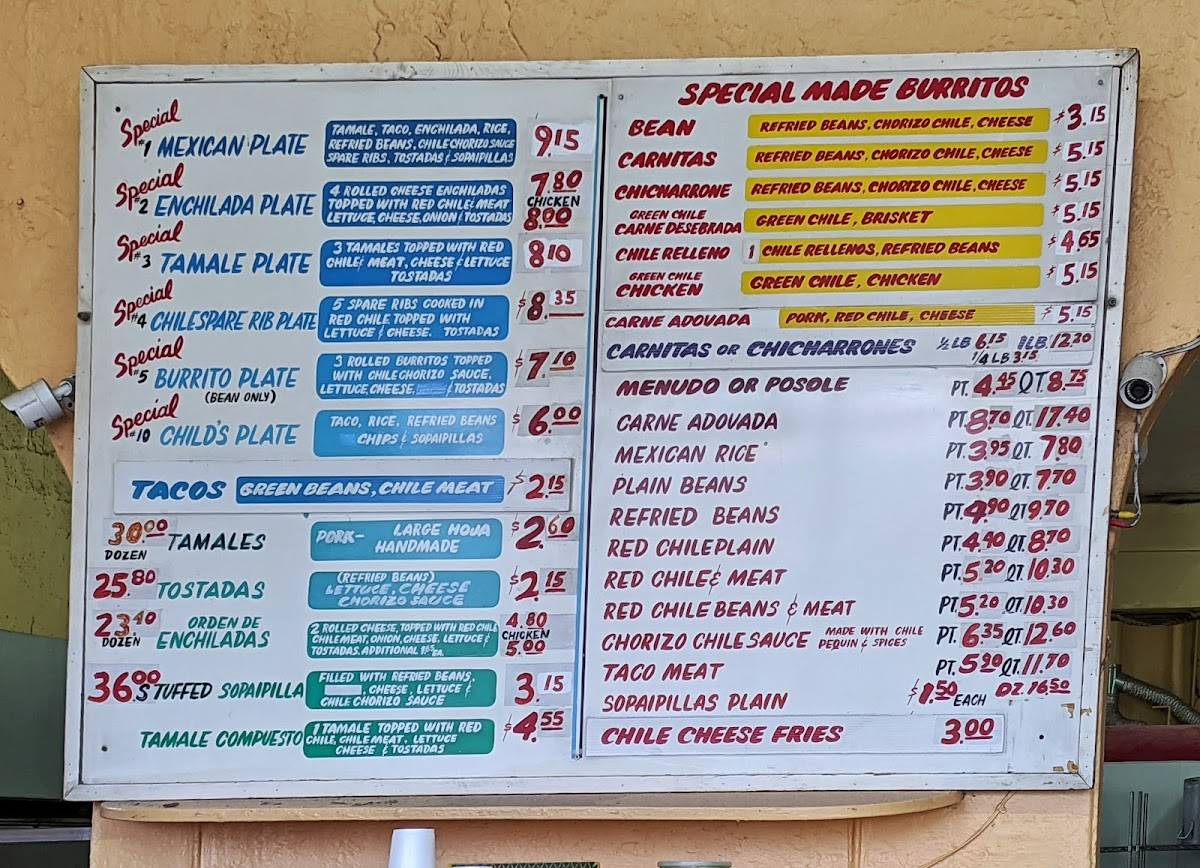 Special #1 MEXICAN PLATE
TAMALE, TACO, ENCHILADA, RICE,
REFRIED BEANS, CHILE CHORIZO SAUCE
SPARE RIBS, TOSTADAS & SOPAIPILLAS
9.15
Special #2 ENCHILADA PLATE
4 ROLLED CHEESE ENCHILADAS
TOPPED WITH RED CHILE & MEAT
LETTUCE, CHEESE, ONION & TOSTADAS
7.80
CHICKEN
8.00
Special #3 TAMALE PLATE
3 TAMALES TOPPED WITH RED
CHILE & MEAT, CHEESE & LETTUCE
TOSTADAS
8.10
Special #4 CHILE SPARE RIB PLATE
5 SPARE RIBS COOKED IN
RED CHILE TOPPED WITH
LETTUCE & CHEESE. TOSTADAS
$8.35
Special #5 BURRITO PLATE
(BEAN ONLY)
3 ROLLED BURRITOS TOPPED
WITH CHILE CHORIZO SAUCE,
LETTUCE, CHEESE, & TOSTADAS
$7.10
Special #10 CHILD'S PLATE
TACO, RICE, REFRIED BEANS
CHIPS & SOPAIPILLAS
$6.00
TACOS GREEN BEANS, CHILE MEAT $2.15
30.00 DOZEN TAMALES
PORK- LARGE HOJA
HANDMADE
$2.60
25.80 TOSTADAS
(REFRIED BEANS)
LETTUCE, CHEESE
CHORIZO SAUCE
$2.15
23.40 DOZEN ORDEN DE
ENCHILADAS
2 ROLLED CHEESE, TOPPED WITH RED CHILE
CHILE MEAT, ONION, CHEESE, LETTUCE &
TOSTADAS. ADDITIONAL EA.
4.80
CHICKEN
5.00
36.00 STUFFED SOPAIPILLA
FILLED WITH REFRIED BEANS,
, CHEESE, LETTUCE &
CHILE CHORIZO SAUCE
3.15
TAMALE COMPUESTO
1 TAMALE TOPPED WITH RED
CHILE, CHILE MEAT. LETTUCE
CHEESE & TOSTADAS
$4.55
SPECIAL MADE BURRITOS
BEAN REFRIED BEANS, CHORIZO CHILE, CHEESE $3.15
CARNITAS REFRIED BEANS, CHORIZO CHILE, CHEESE $5.15
CHICHARRONE REFRIED BEANS, CHORIZO CHILE, CHEESE $5.15
GREEN CHILE
CARNE DESEBRADA GREEN CHILE, BRISKET $5.15
CHILE RELLENO 1 CHILE RELLENOS, REFRIED BEANS $4.65
GREEN CHILE
CHICKEN GREEN CHILE, CHICKEN $5.15
CARNE ADOVADA PORK, RED CHILE, CHEESE $5.15
CARNITAS OR CHICHARRONES ½ LB 6.15 1LB. 12.20
1/4 LB 3.15
MENUDO OR POSOLE PT. 4.45 QT. 8.75
CARNE ADOVADA PT. 8.70 QT. 17.40
MEXICAN RICE PT. 3.95 QT. 7.80
PLAIN BEANS PT. 3.90 QT. 7.70
REFRIED BEANS PT. 4.90 QT. 9.70
RED CHILE PLAIN PT. 4.40 QT. 8.70
RED CHILE & MEAT PT. 5.20 QT. 10.30
RED CHILE BEANS & MEAT PT. 5.20 QT. 10.30
CHORIZO CHILE SAUCE MADE WITH CHILE
PEQUIN & SPICES PT. 6.35 QT. 12.60
TACO MEAT PT. 5.90 QT. 11.70
SOPAIPILLAS PLAIN $1.50 EACH DZ. 16.50
CHILE CHEESE FRIES 3.00